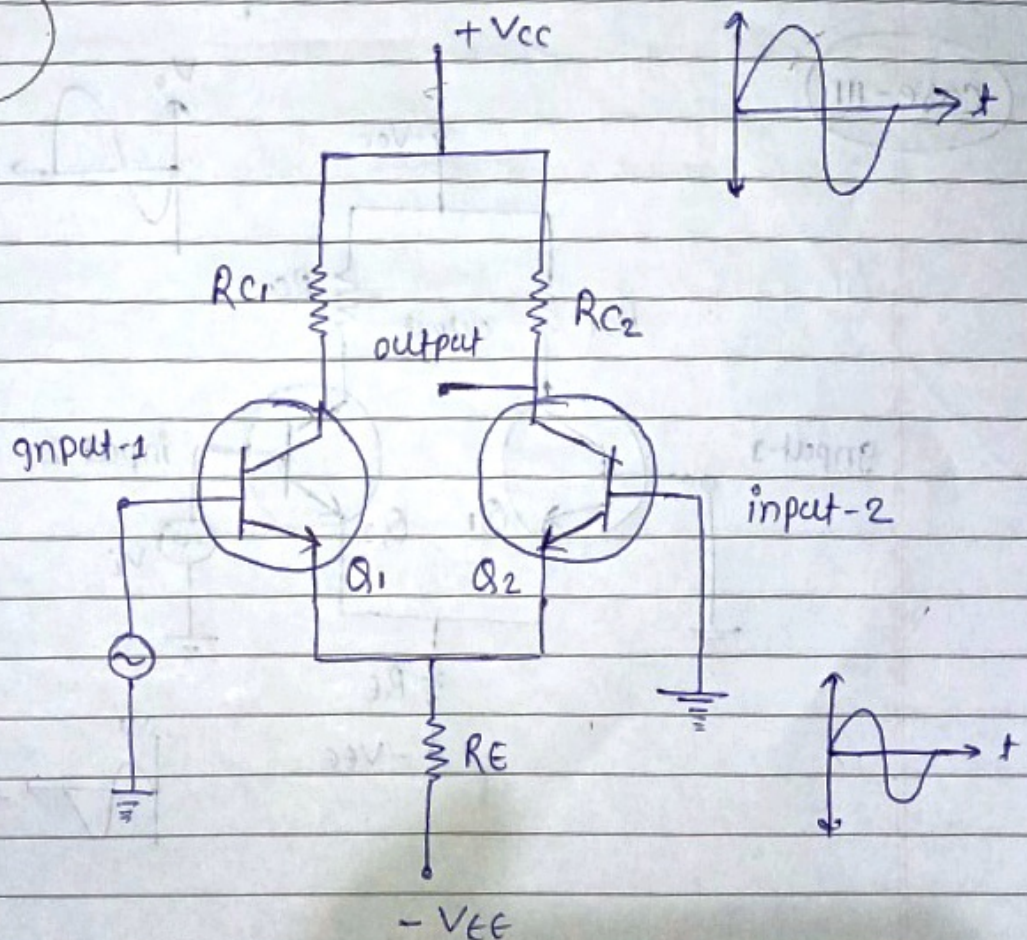 + Vcc
t
RC1
RC2
output
gnput-1
input-2
Q1
Q2
RE
t
- VEE